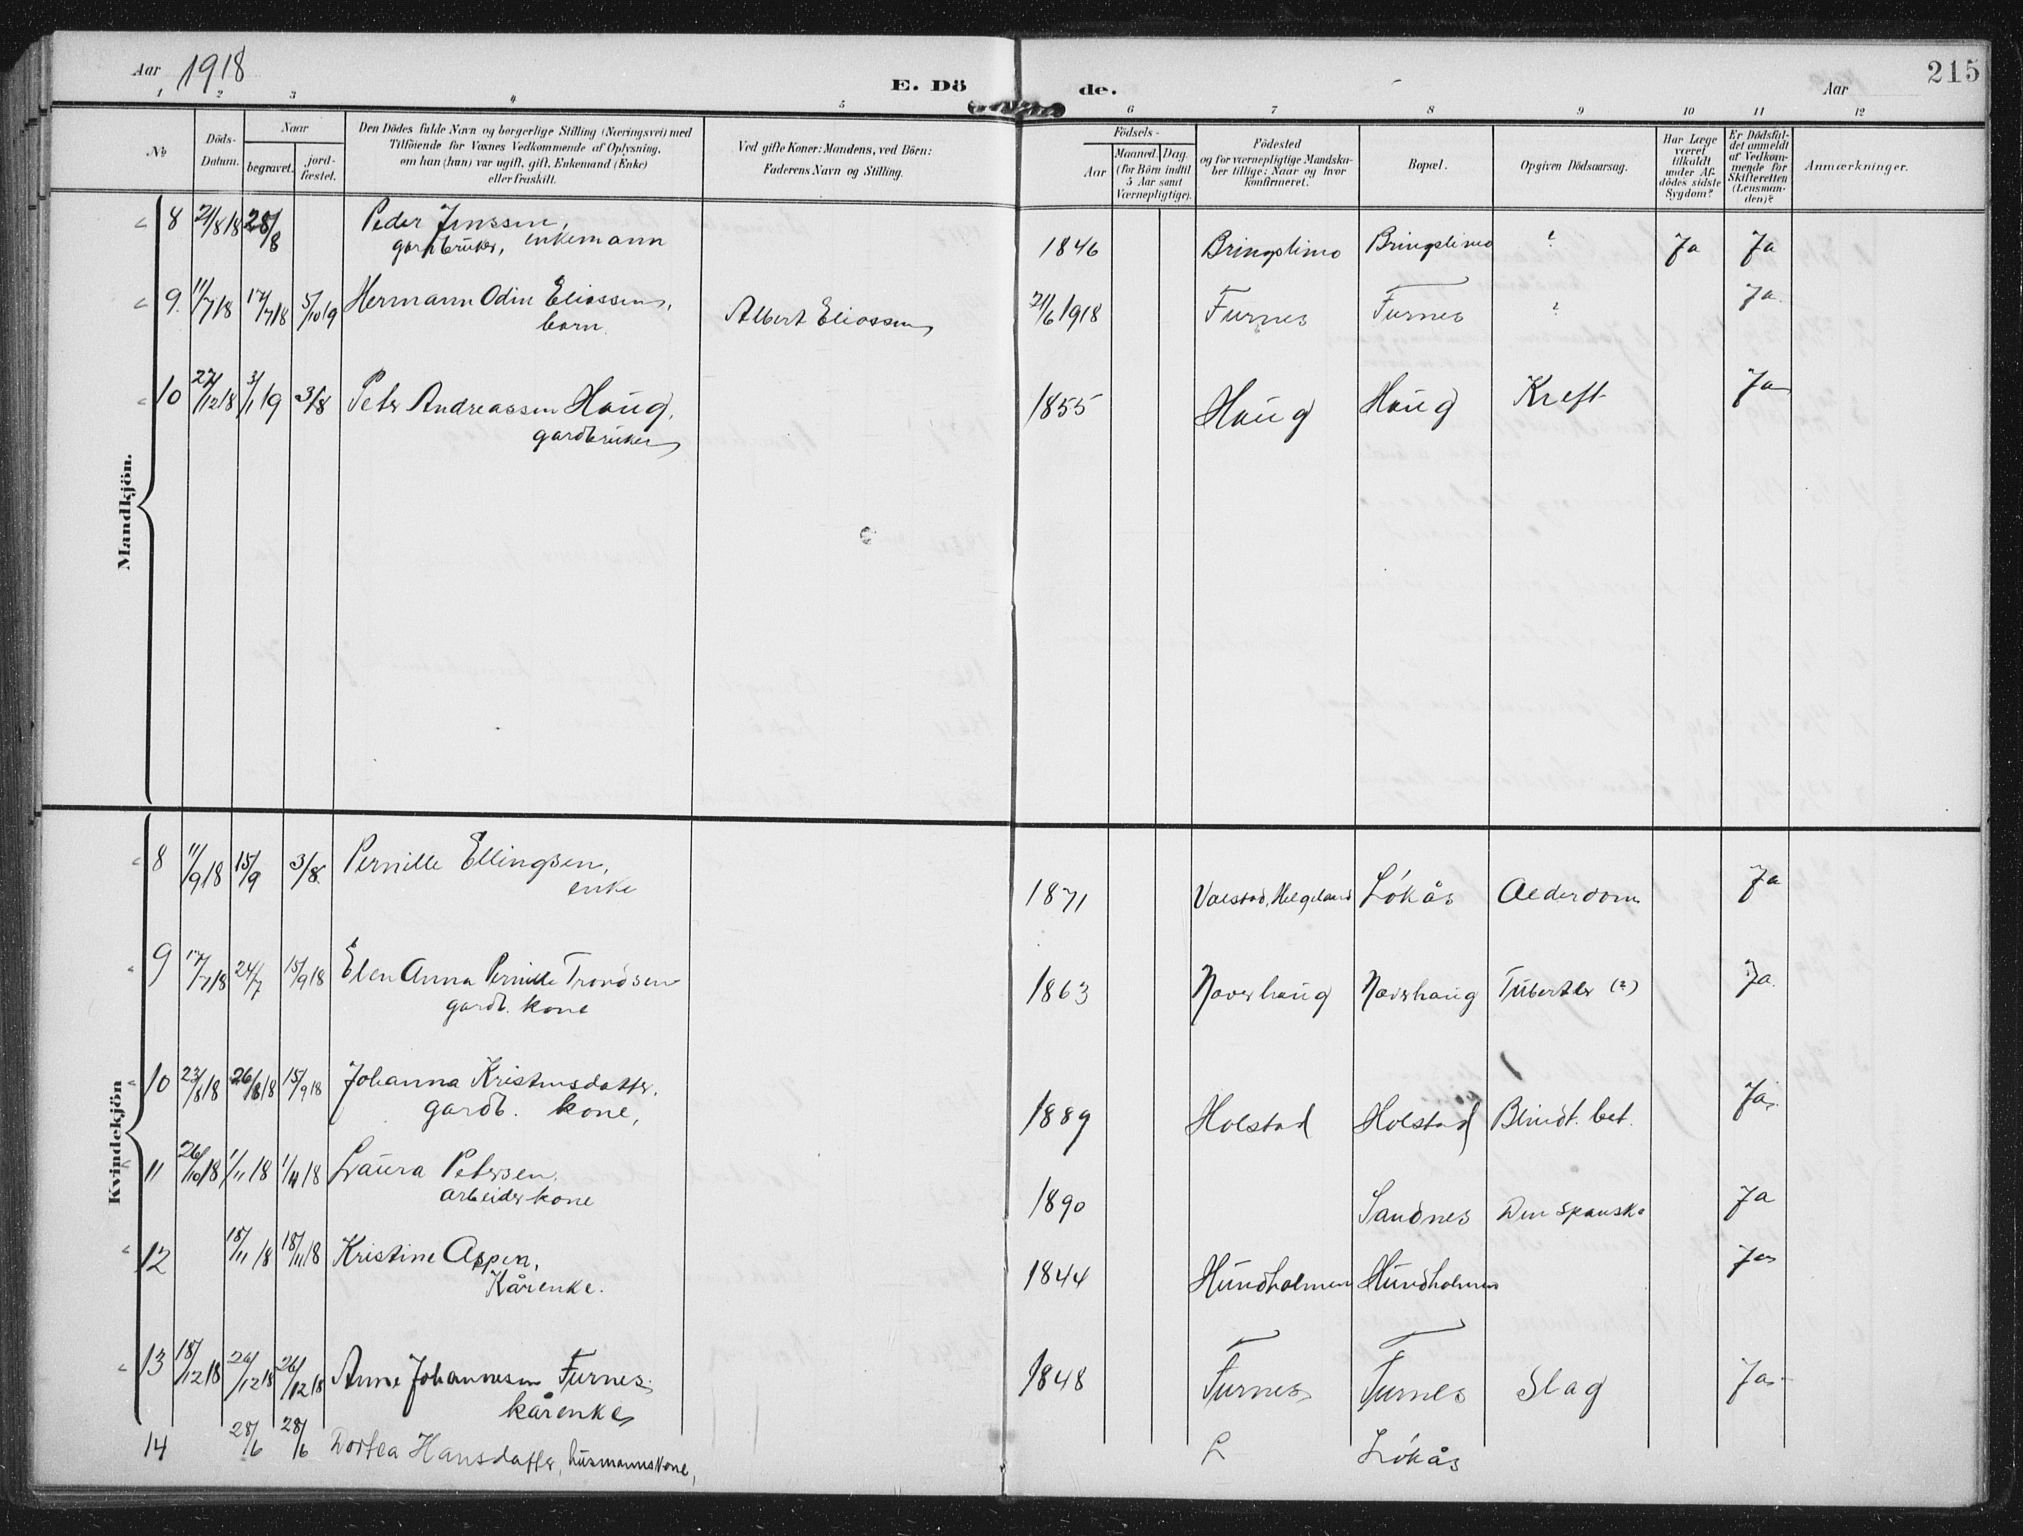 Aar 1918
E. Dö de.
Aar
215
1 2 3 4 5 6 7 8 9 10 11 12
No
Döds-Datum.
Naar
begravet.
jord-fæstet.
Den Dödes fulde Navn og borgerlige Stilling (Næringsvei) med
Tilföiende for Voxnes Vedkommende af Oplysning,
om han (hun) var ugift, gift, Enkemand (Enke)
eller fraskilt.
Ved gifte Koner: Mandens, ved Börn:
Faderens Navn og Stilling.
Födsels-
Aar
Maaned. Dag.
(for Börn indtil
5 Aar samt
Værnepligtige).
Födested
og for værnepligtige Mandska-
ber tillige: Naar og hvor
konfirmeret.
Bopæl.
Opgiven Dödsaarsag.
Har Læge
været
tilkaldt
under Af-
dödes sidste
Sygdom?
Er Dödsfal-
det anmeldt
af Vedkom-
mende for
Skifteretten
(Lensman-
den)?
Anmærkninger.
Mandkjön.
8 2/8 18 28/8 Peder Jenssen, 1846 Bringslimo Bringslimo ? Ja Ja
gardbruker, enkemann
9. 11/7 18 17/7 18 5/10 19 Hermann Odin Eliassen, Albert Eliassen 21/6 1918 Furnes Furnes ? Ja.
barn.
10 27/12 18 3/1 19 3/8 Peter Andreassen Haug, 1855 Haug Haug Kreft Ja
gardbruker
Kvindekjön
8 11/9 18 15/9 3/8. Pernille Ellingsen, 1871 Valstad, Helgeland Løkås Alderdom Ja
enke
9 17/7 18 24/7 15/9 18 Elen Anna Pernille Trondsen 1863 Naverhaug Naverhaug Tuberkler (?) Ja.
gardb. kone
10 23/8 18 26/8 18 15/9 18 Johanna Kristensdatter, 1889 Holstad Holstad Blindt. bet. Ja.
gardb. kone,
11 26/10 18 1/11 18 1/11 18 Laura Petersen, 1890 Sandnes Den spanske Ja
arbeider kone
12 18/11 18 18/11 18 Kristine Aspen, 1844 Hundholmen Hundholmen Ja
Kårenke.
13 18/12 18 26/12 18 26/12 18 Anne Johannesen Furnes. 1848 Furnes Furnes Slag Ja.
kårenke
14 28/6 28/6 Dortea Hansdatter, husmannskone, L Løkås